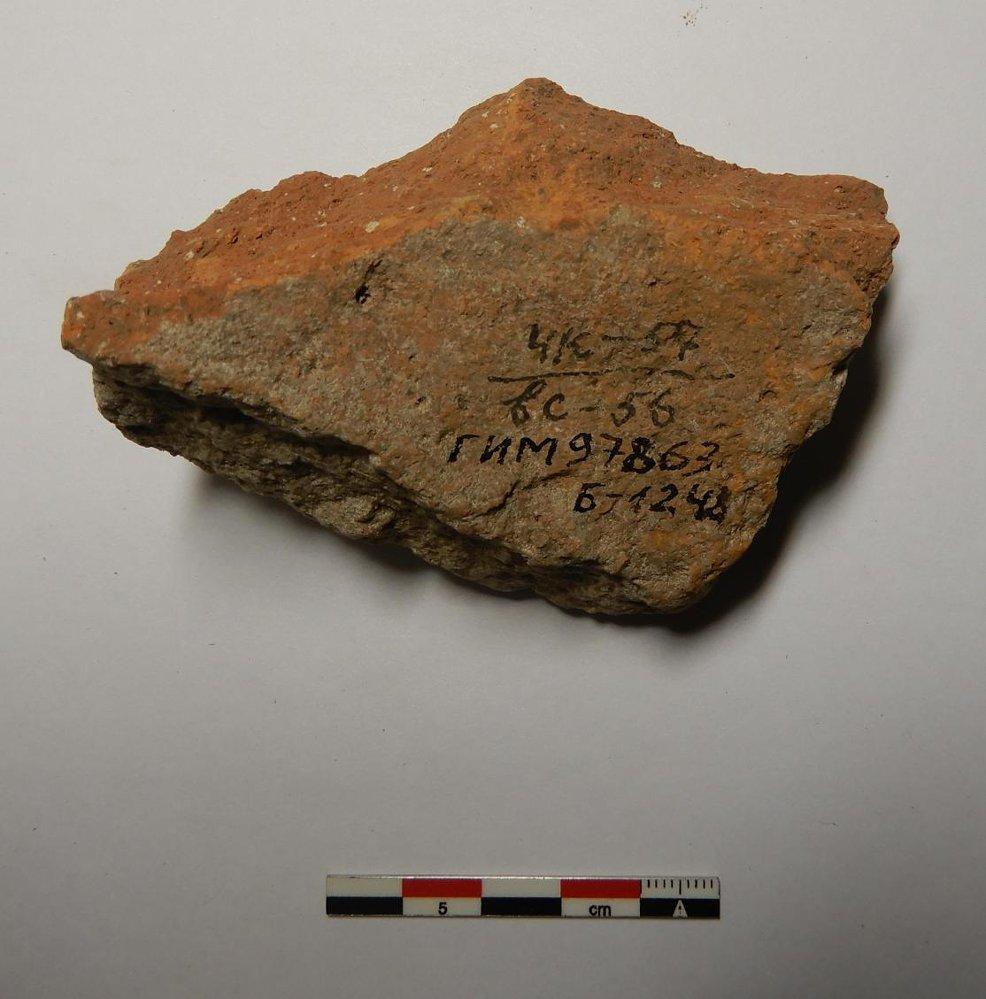 ЧК-57
вс-56
ГИМ97863
Б-1248
5 cm